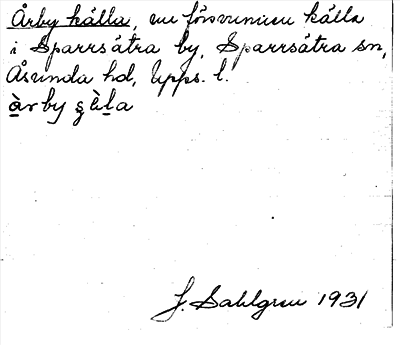 Årby källa, nu försvunnen källa
i Sparrsätra by, Sparrsätra sn,
Åsunda hd, Upps. l.
J. Sahlgren 1931